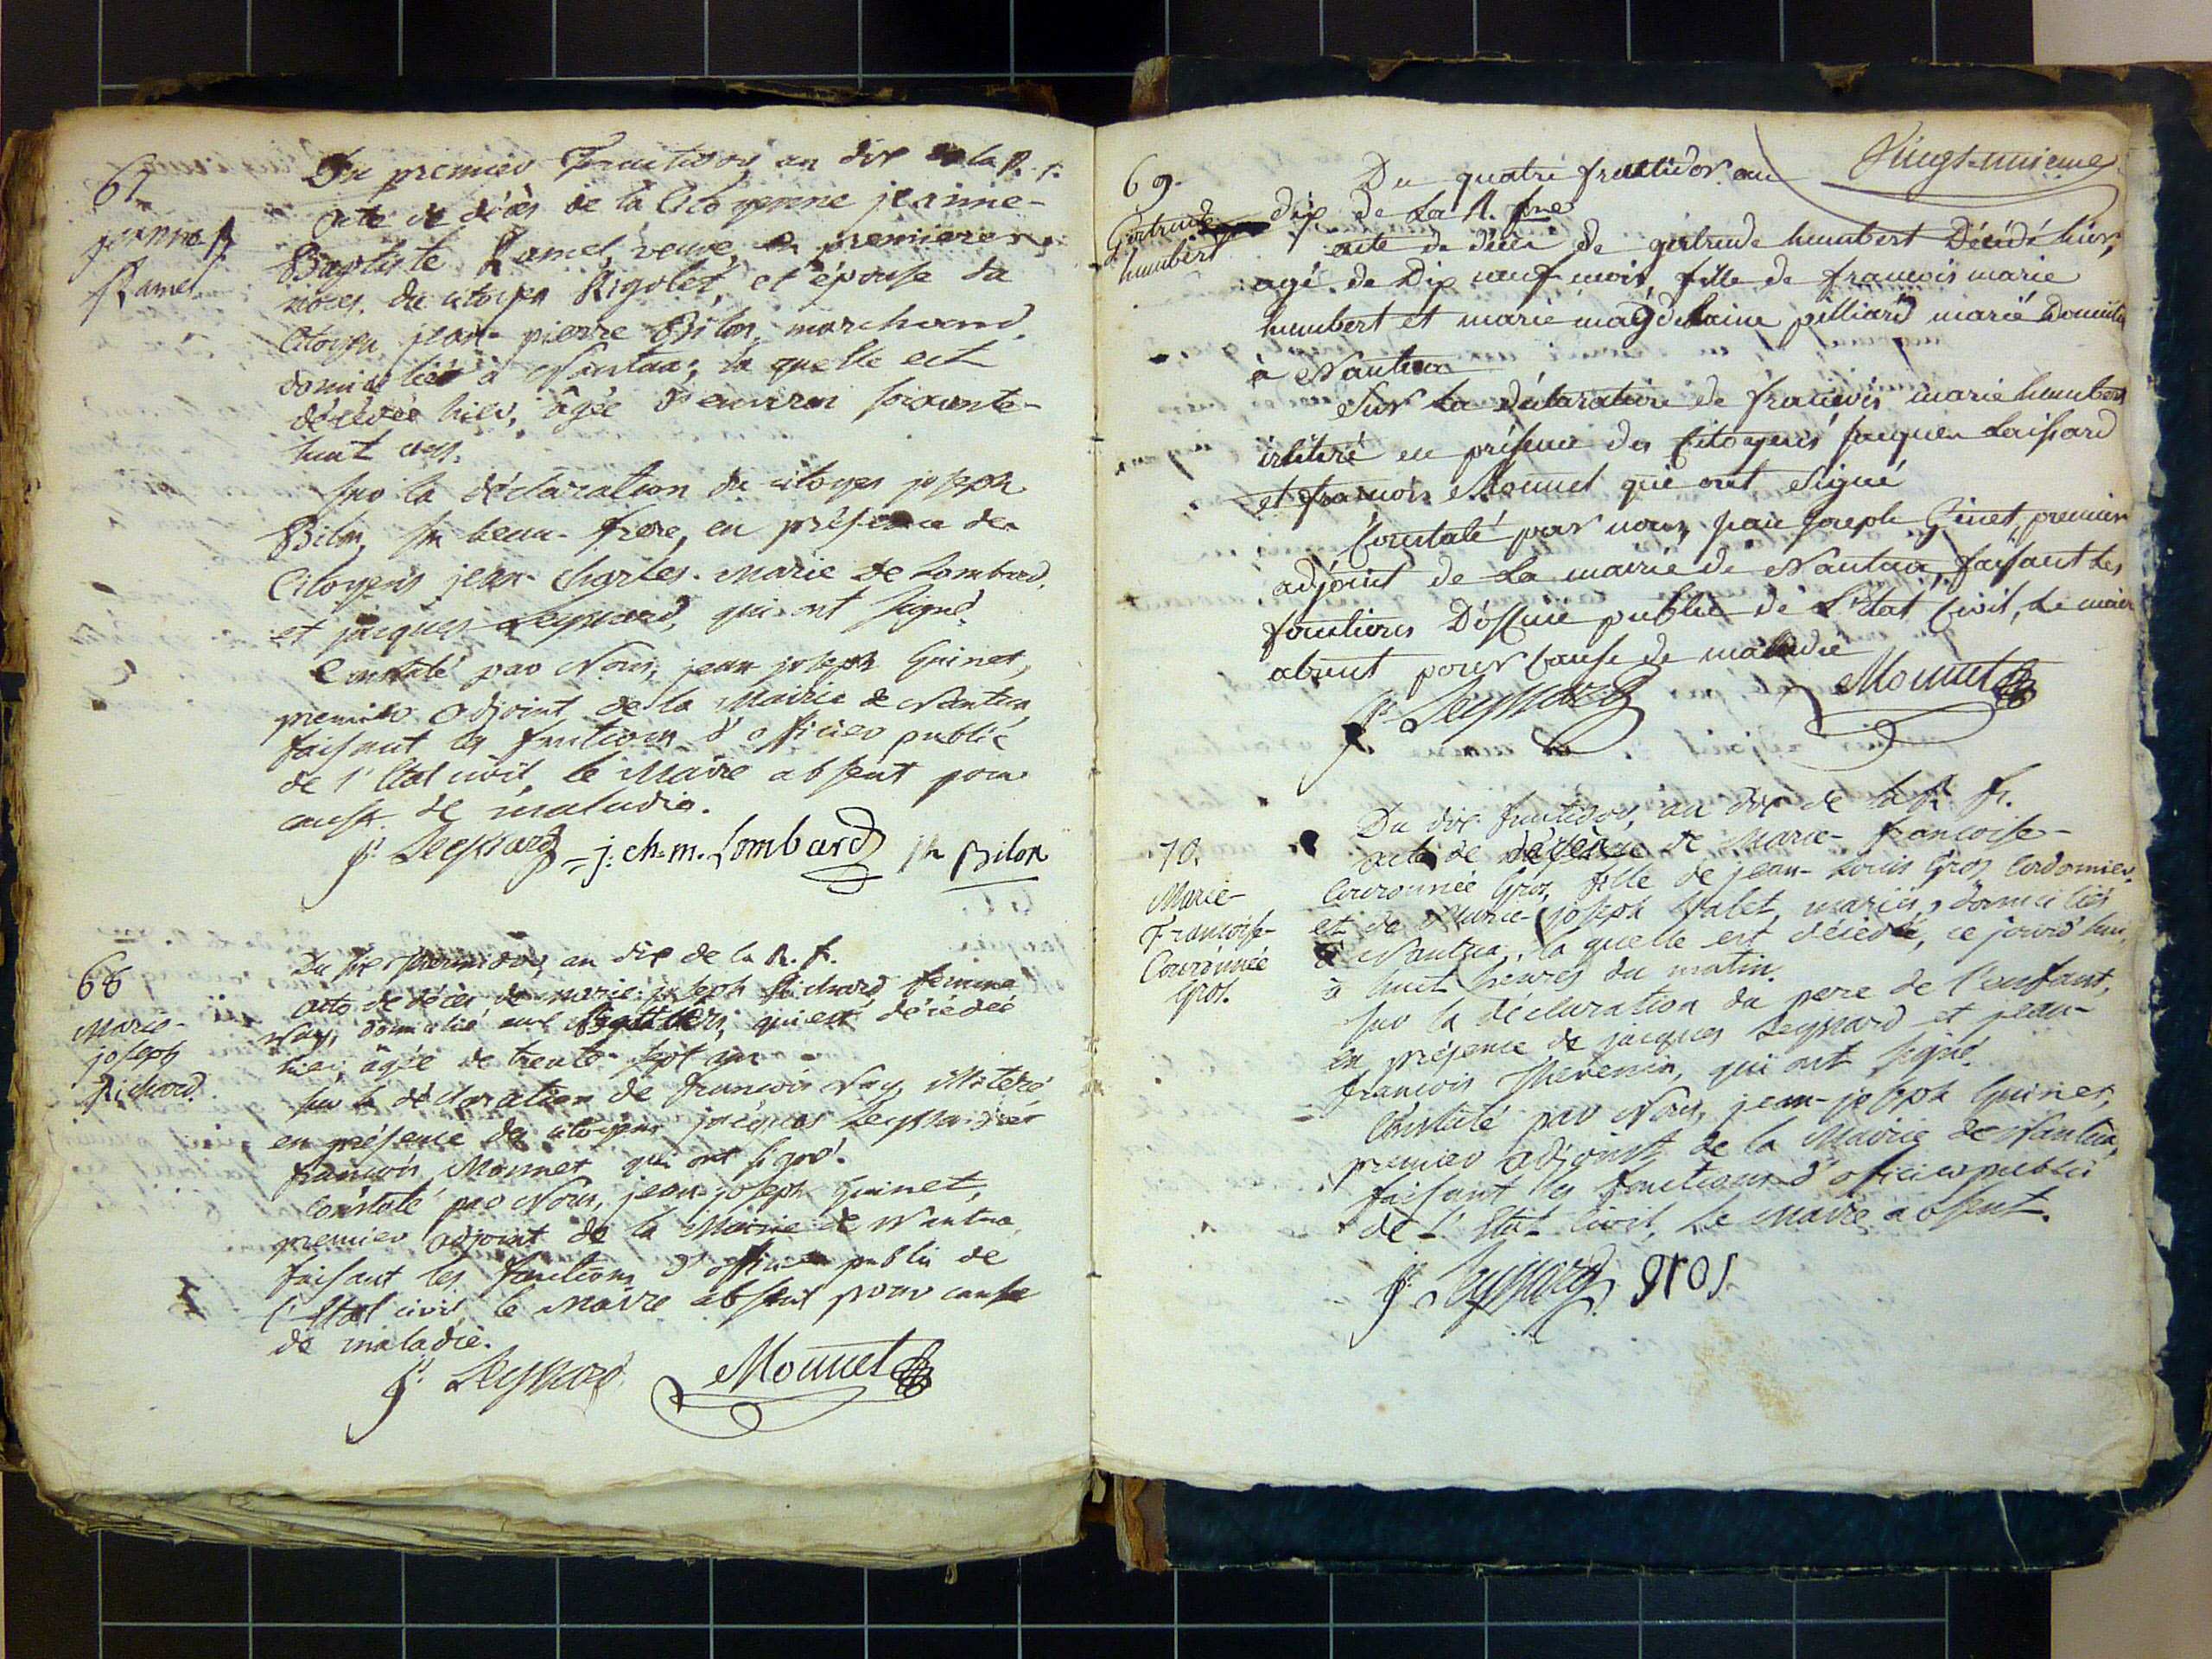 67
jeanne B.
Ramel
Du premier Fructidor, an dix de la R. f.
acte de décès de la Citoyenne jeanne-
Baptiste Ramel, veuve, en premieres
noces, du citoyen Rigolet, et épouse du
Citoyen jean-pierre Bilon, marchand,
domicilié à Nantua; la quelle est
décédée hier, âgée d'environ soixante-
huit ans.
sur la déclaration du citoyen joseph
Bilon, son beau-frere, en présence des
Citoyens jean-charles-marie de Lombard,
et jacques Leyssard, qui ont signé.
Constaté par Nous, jean joseph Guinet,
premier adjoint de la Mairie de Nantua,
faisant les fonctions d'officier public
de l'Etat civil, le Maire absent pour
cause de maladie.
js. Leyssard j. ch. m. Lombard jh Bilon
68
Marie-
joseph
Richard.
Du an dix de la R. f.
acte de décès de marie-joseph Richard femme
Nay, domicilié aux qui est décédée
hier, âgée de trente-sept ans
sur la déclaration de francois Nay, illitéré
en présence des citoyens jacques Leyssard et
francois Monnet qui ont signé.
Constaté par Nous, jean-joseph Guinet,
premier adjoint de la Mairie de Nantua,
faisant les fonctions d'officier public de
l'Etat civil, le Maire absent pour cause
de maladie.
js. Leyssard Monnet
Vingt-unieme
69.
Gertrude
humbert
Du quatre fructidor an
dix de La R. fse
acte de décès de gertrude humbert Décédé hier,
agé de Dix neuf mois, fille de francois marie
humbert et marie magdelaine pilliard marié Domicilié
à Nantua
Sur La Déclaration de francois marie humbert
illitéré en présence des Citoyens Jacques Laissard
et francois Monnet qui ont signé
Constaté par nous, jean joseph Guinet, premier
adjoint de La mairie de Nantua, faisant Les
fonctions D'officie public de L'etat Civil, Le maire
absent pour Cause de maladie
js. Leyssard Monnet
70.
Marie-
Francoise-
Couronnée
Gros.
Du dix fructidor, an dix de la R. fr.
acte de décès de Marie-francoise-
Couronnée Gros, fille de jean-Louis Gros, Cordonnier,
et de Marie-joseph Valet, mariés, domiciliés
à Nantua, la quelle est décédée, ce jourd'hui,
à huit heures du matin.
sur la déclaration du pere de l'enfant,
en présence de jacques Leyssard et jean-
francois Thevenin, qui ont signé.
Constaté par Nous, jean-joseph Guinet,
premier adjoint de la Mairie de Nantua,
faisant les fonctions d'officier public
de l'Etat Civil, Le Maire absent.
js. Leyssard gros